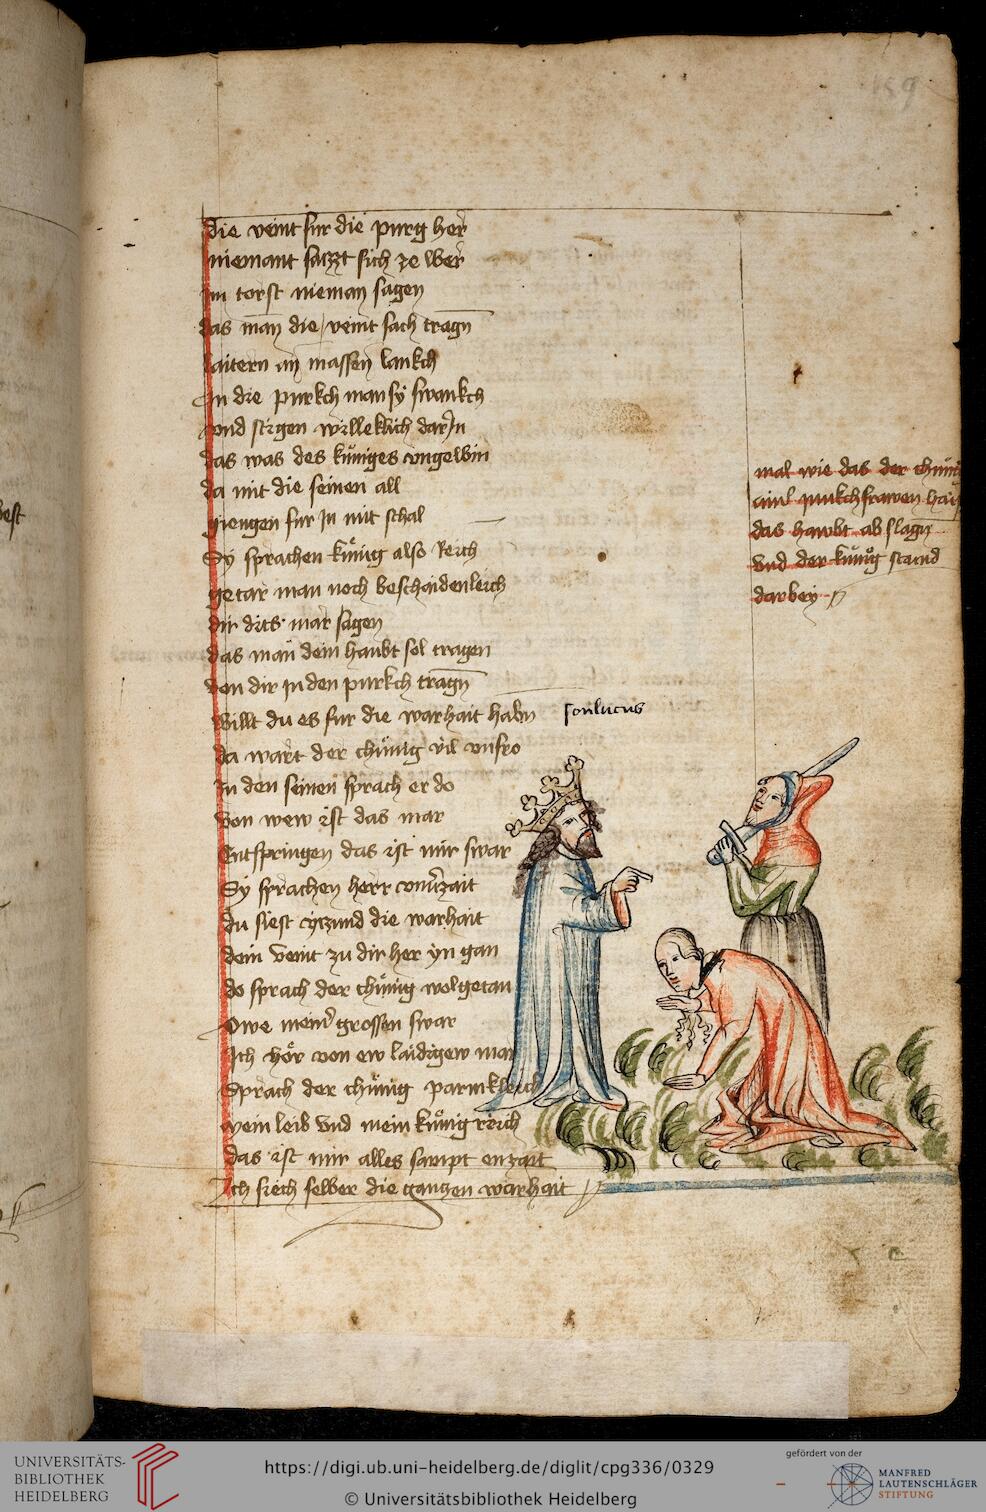 159
die veint fur die purg her
niemant saczt sich ze wer
Im torst nieman sagen
das man die veint sach tragn
laitern an massen lankch
In die purkch man sy swankch
vnd stigen willeklich dar In
das was des kuniges vngewin
da mit die seinen all
giengen fur In mit schal
Sy sprachen kunig also Reich
getar man noch beschaidenleich
dir dits mar sagen
das man dein haubt sol tragen
von dir In den purkch tragn
Willt du es fur die warhait habn
da wart der chunig vil vnfro
In den seinen sprach er do
Von wew ist das mar
Entspringen das ist mir swar
Sy sprachen herr vnuerzait
du siest yczund die warhait
dein veint zu dir her yn gan
do sprach der chunig wolgetan
Owe meiner grossen swar
Ich hor von ew laidigew mar
Sprach der chunig parmkleich
Mein leib vnd mein kunigreich
das ist mir alles sampt enzait
Ich siech selber die ganczen warhait
mal wie das der chunig
ainr junkchfrawen
das hawbt ab slagn
vnd der kunig staind
darbey
UNIVERSITÄTS-
BIBLIOTHEK
HEIDELBERG
https://digi.ub.uni-heidelberg.de/diglit/cpg336/0329
© Universitätsbibliothek Heidelberg
gefördert von der
MANFRED
LAUTENSCHLÄGER
STIFTUNG